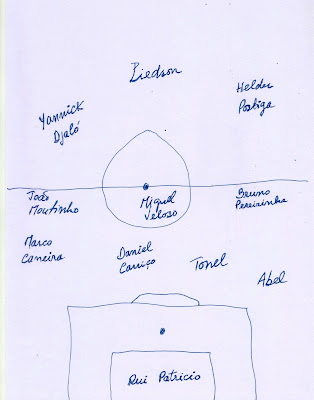 Liedson
Helder
Postiga
Yannick
Djaló
João
Moutinho
Miguel
Veloso
Bruno
Pereirinha
Marco
Caneira
Daniel
Carriço
Tonel
Abel
Rui Patricio